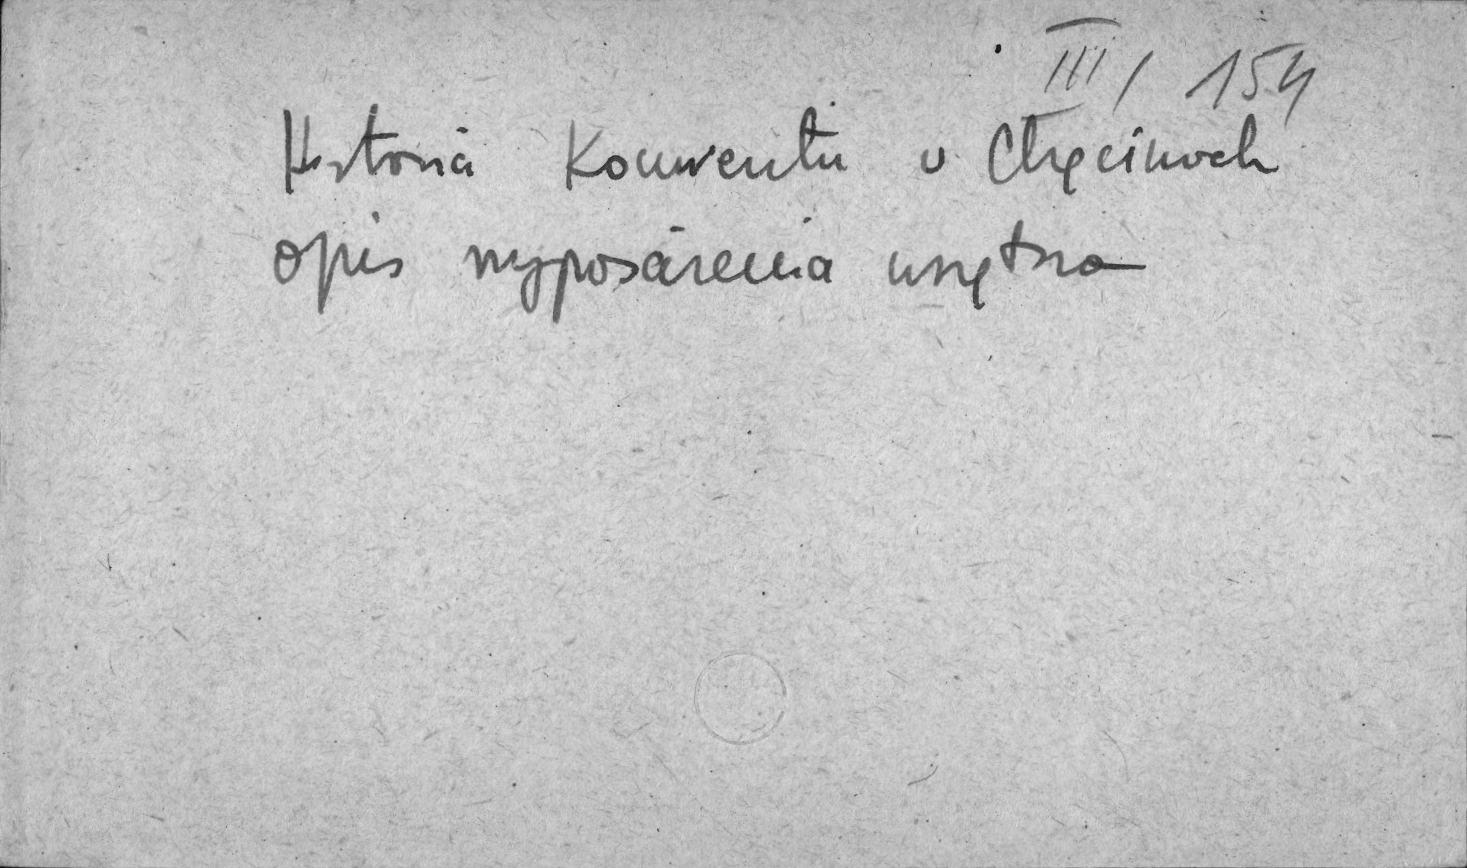 III/154
Historia Konwentu w Chęcinach
opis wyposażenia wnętrza